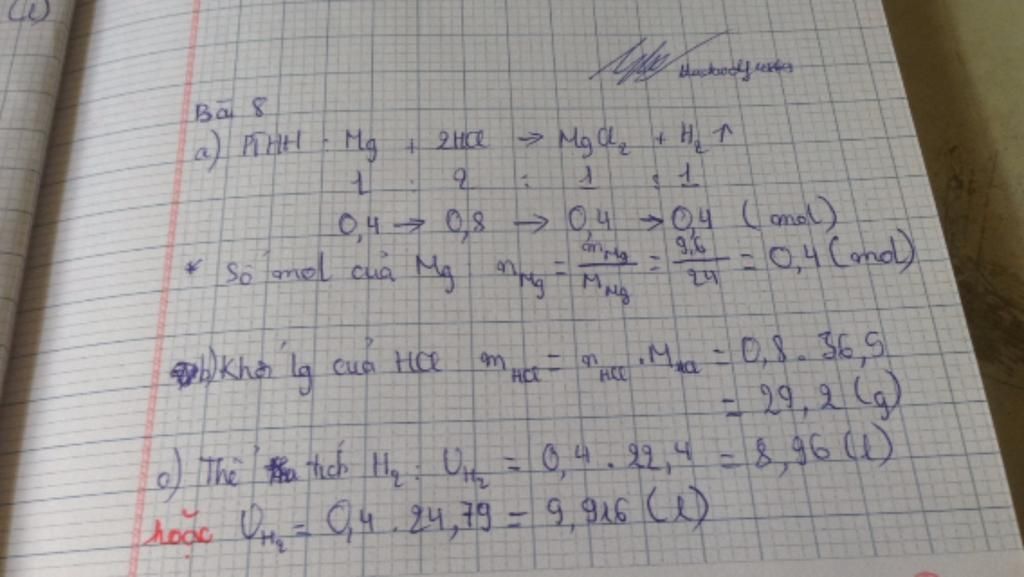 (l)
Bài 8
a) PTHH: Mg + 2HCl → MgCl₂ + H₂ ↑
1 : 2 : 1 : 1
0,4 → 0,8 → 0,4 → 0,4 (mol)
* Số mol của Mg n_Mg = m_Mg / M_Mg = 9,6 / 24 = 0,4 (mol)
b) Khối lg của HCl m_HCl = n_HCl . M_HCl = 0,8 . 36,5
= 29,2 (g)
c) Thể tích H₂: V_H₂ = 0,4 . 22,4 = 8,96 (l)
hoặc V_H₂ = 0,4 . 24,79 = 9,916 (l)